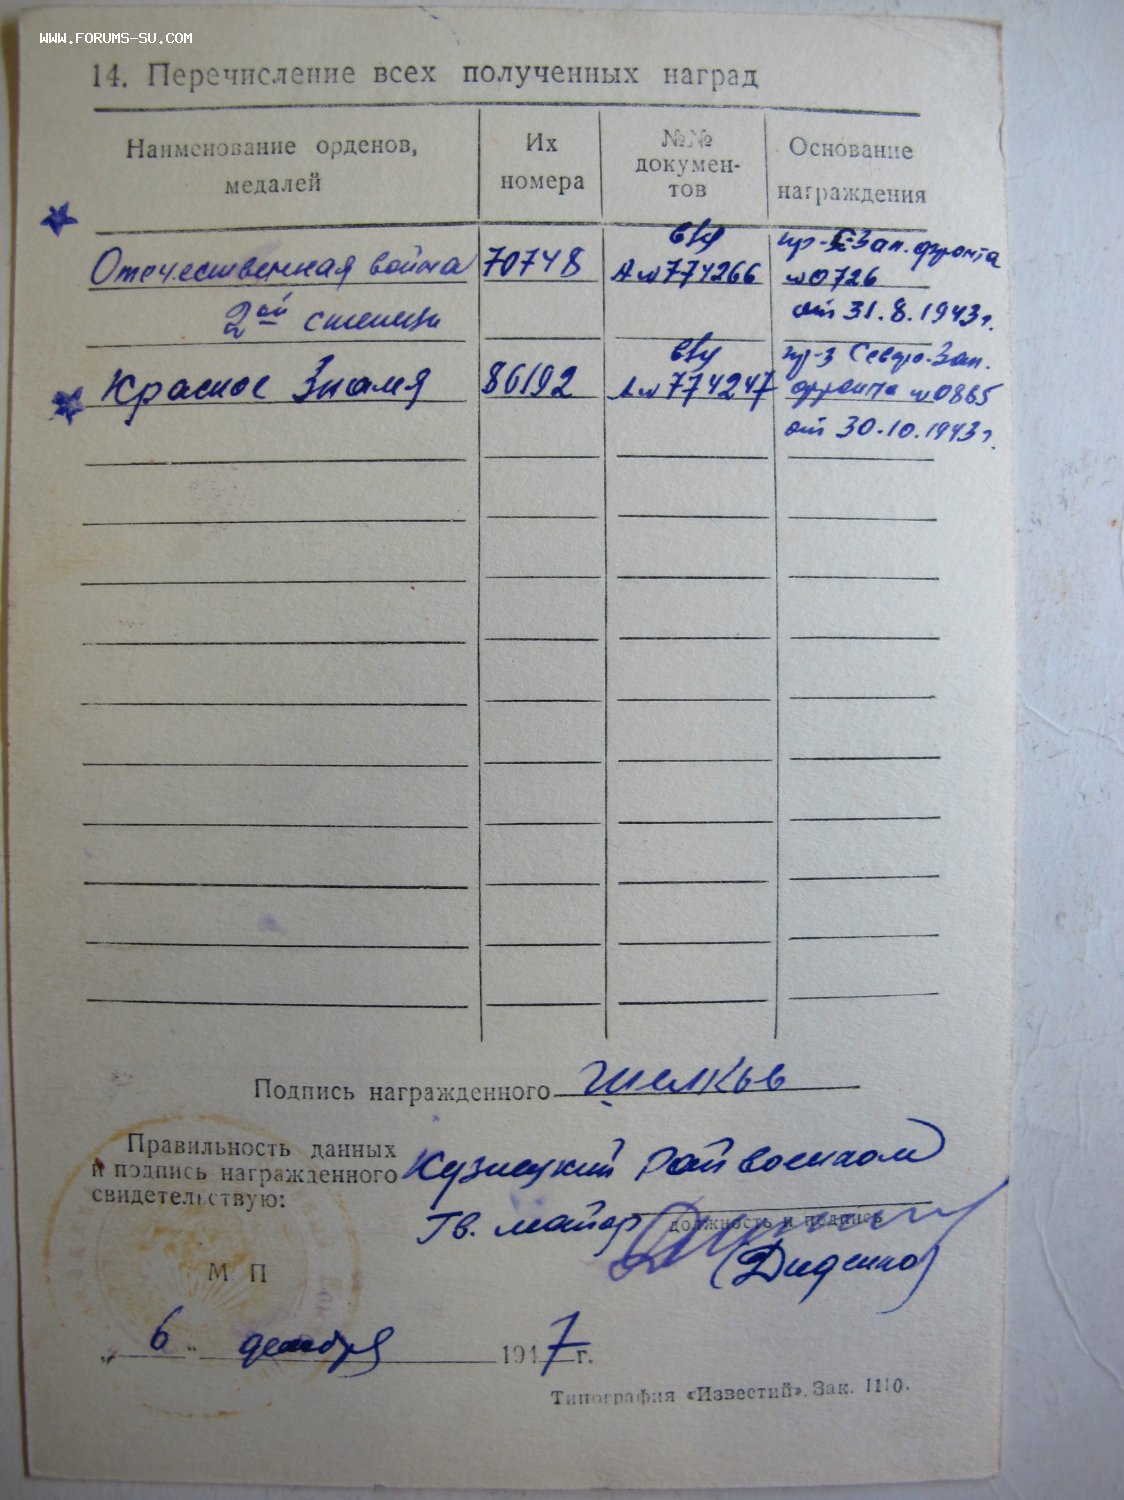 WWW.FORUMS-SU.COM
14. Перечисление всех полученных наград
Наименование орденов,
медалей
Их
номера
№№
докумен-
тов
Основание
награждения
Отечественная война
2ой степени
70748
А № 774266
Зап. фронта
№ 0726
от 31.8.1943г.
Красное Знамя
86192
А № 774247
Северо-Зап.
фронта № 0865
от 30.10.1943г.
Подпись награжденного
Правильность данных
и подпись награжденного
свидетельствую:
Кузнецкий Райвоенком
Гв. майор
должность и подпись
(Диденко)
М П
„ 6 “ декабря 1947 г.
Типография «Известий». Зак. 1110.